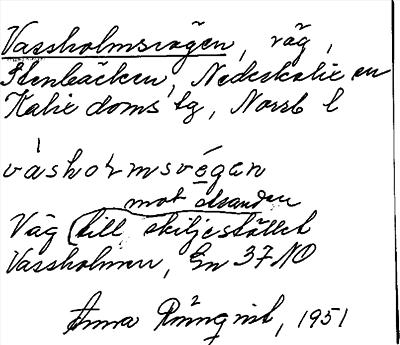 Vassholmsvägen, väg,
Stenbäcken, Nederkalix en
Kalix doms lg, Norrb l
vasholmsvęgan
mot ölsanden
Väg till skiljestället
Vassholmen, En 37 NO
Anna Rönnqvist, 1951